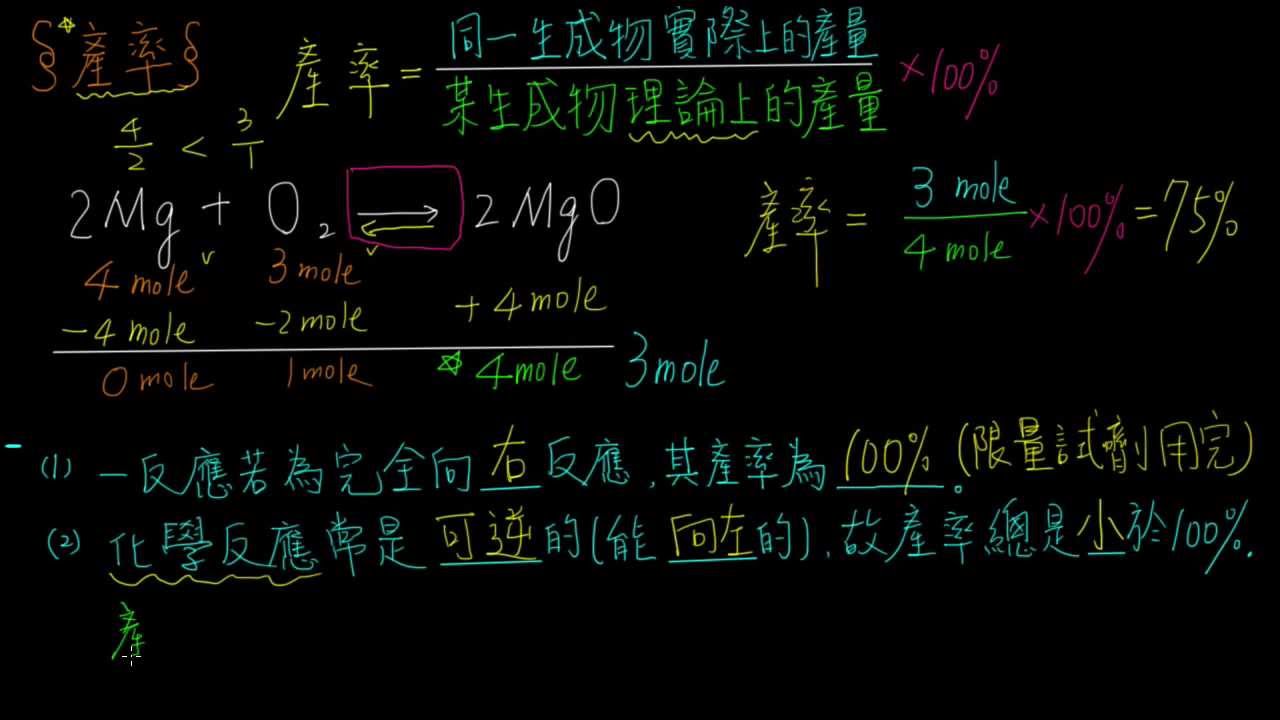 §*產率§
產率 = 同一生成物實際上的產量 / 某生成物理論上的產量 × 100%
4/2 < 3/1
2Mg + O₂ ⇌ 2MgO
產率 = 3 mole / 4 mole × 100% = 75%
4 mole 3 mole
-4 mole -2 mole +4 mole
0 mole 1 mole ☆4 mole 3 mole
(1) 一反應若為完全向右反應,其產率為100%。(限量試劑用完)
(2) 化學反應常是可逆的(能向左的),故產率總是小於100%.
產